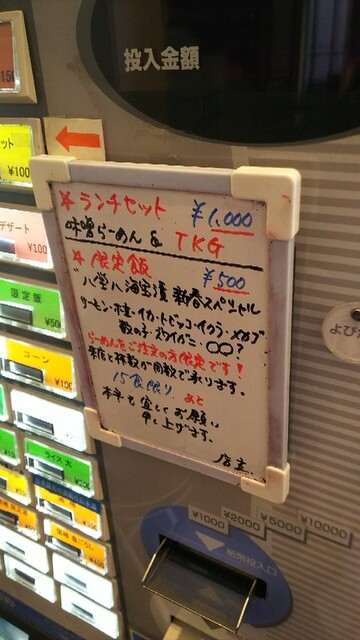 投入金額
¥100
＊ランチセット ¥1,000
味噌らーめん & TKG
＊限定飯 ¥500
"八堂八海宝漬 新春スペシャル
サーモン・本・イカ・トビッコ・イクラ・メカブ
数の子・ズワイガニ・〇〇?
らーめんをご注文の方限定です!
来店と杯数が同数で承ります。
15食限り あと
本年も宜しくお願い
申し上げます。
店主
デザート
¥100
限定飯
コーン
ライス 大
よび
¥1000 ¥2000 ¥5000 ¥10000
紙幣投入口